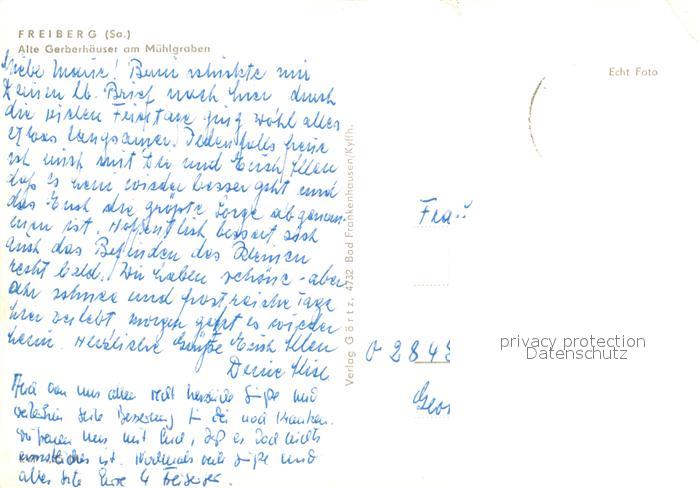 FREIBERG (Sa.)
Alte Gerberhäuser am Mühlgraben
Echt Foto
Liebe Mause! Berni schickte mir
Deinen lb. Brief nach hier durch
die vielen Feiertage ging wohl alles
etwas langsamer. Jedenfalls freue
ich mich mit Dir und Euch Allen
daß es Heini wieder besser geht und
das Euch die größte Sorge abgenom-
men ist. Hoffentlich bessert sich
auch das Befinden des Kleinen
recht bald. Wir haben schöne - aber
sehr schnee und frostreiche Tage
hier verlebt morgen geht es wieder
heim. Herzliche Grüße Euch Allen
Deine Ilse
Auch von uns allen recht herzliche Grüße und
weiterhin gute Besserung für die noch Kranken.
Wir freuen uns mit Euch, daß es doch nichts
ernstliches ist. Nochmals viele Grüße und
alles Gute Eure 4 Freiberger.
Verlag Görtz, 4732 Bad Frankenhausen/Kyffh.
Frau
O 2845
privacy protection
Datenschutz